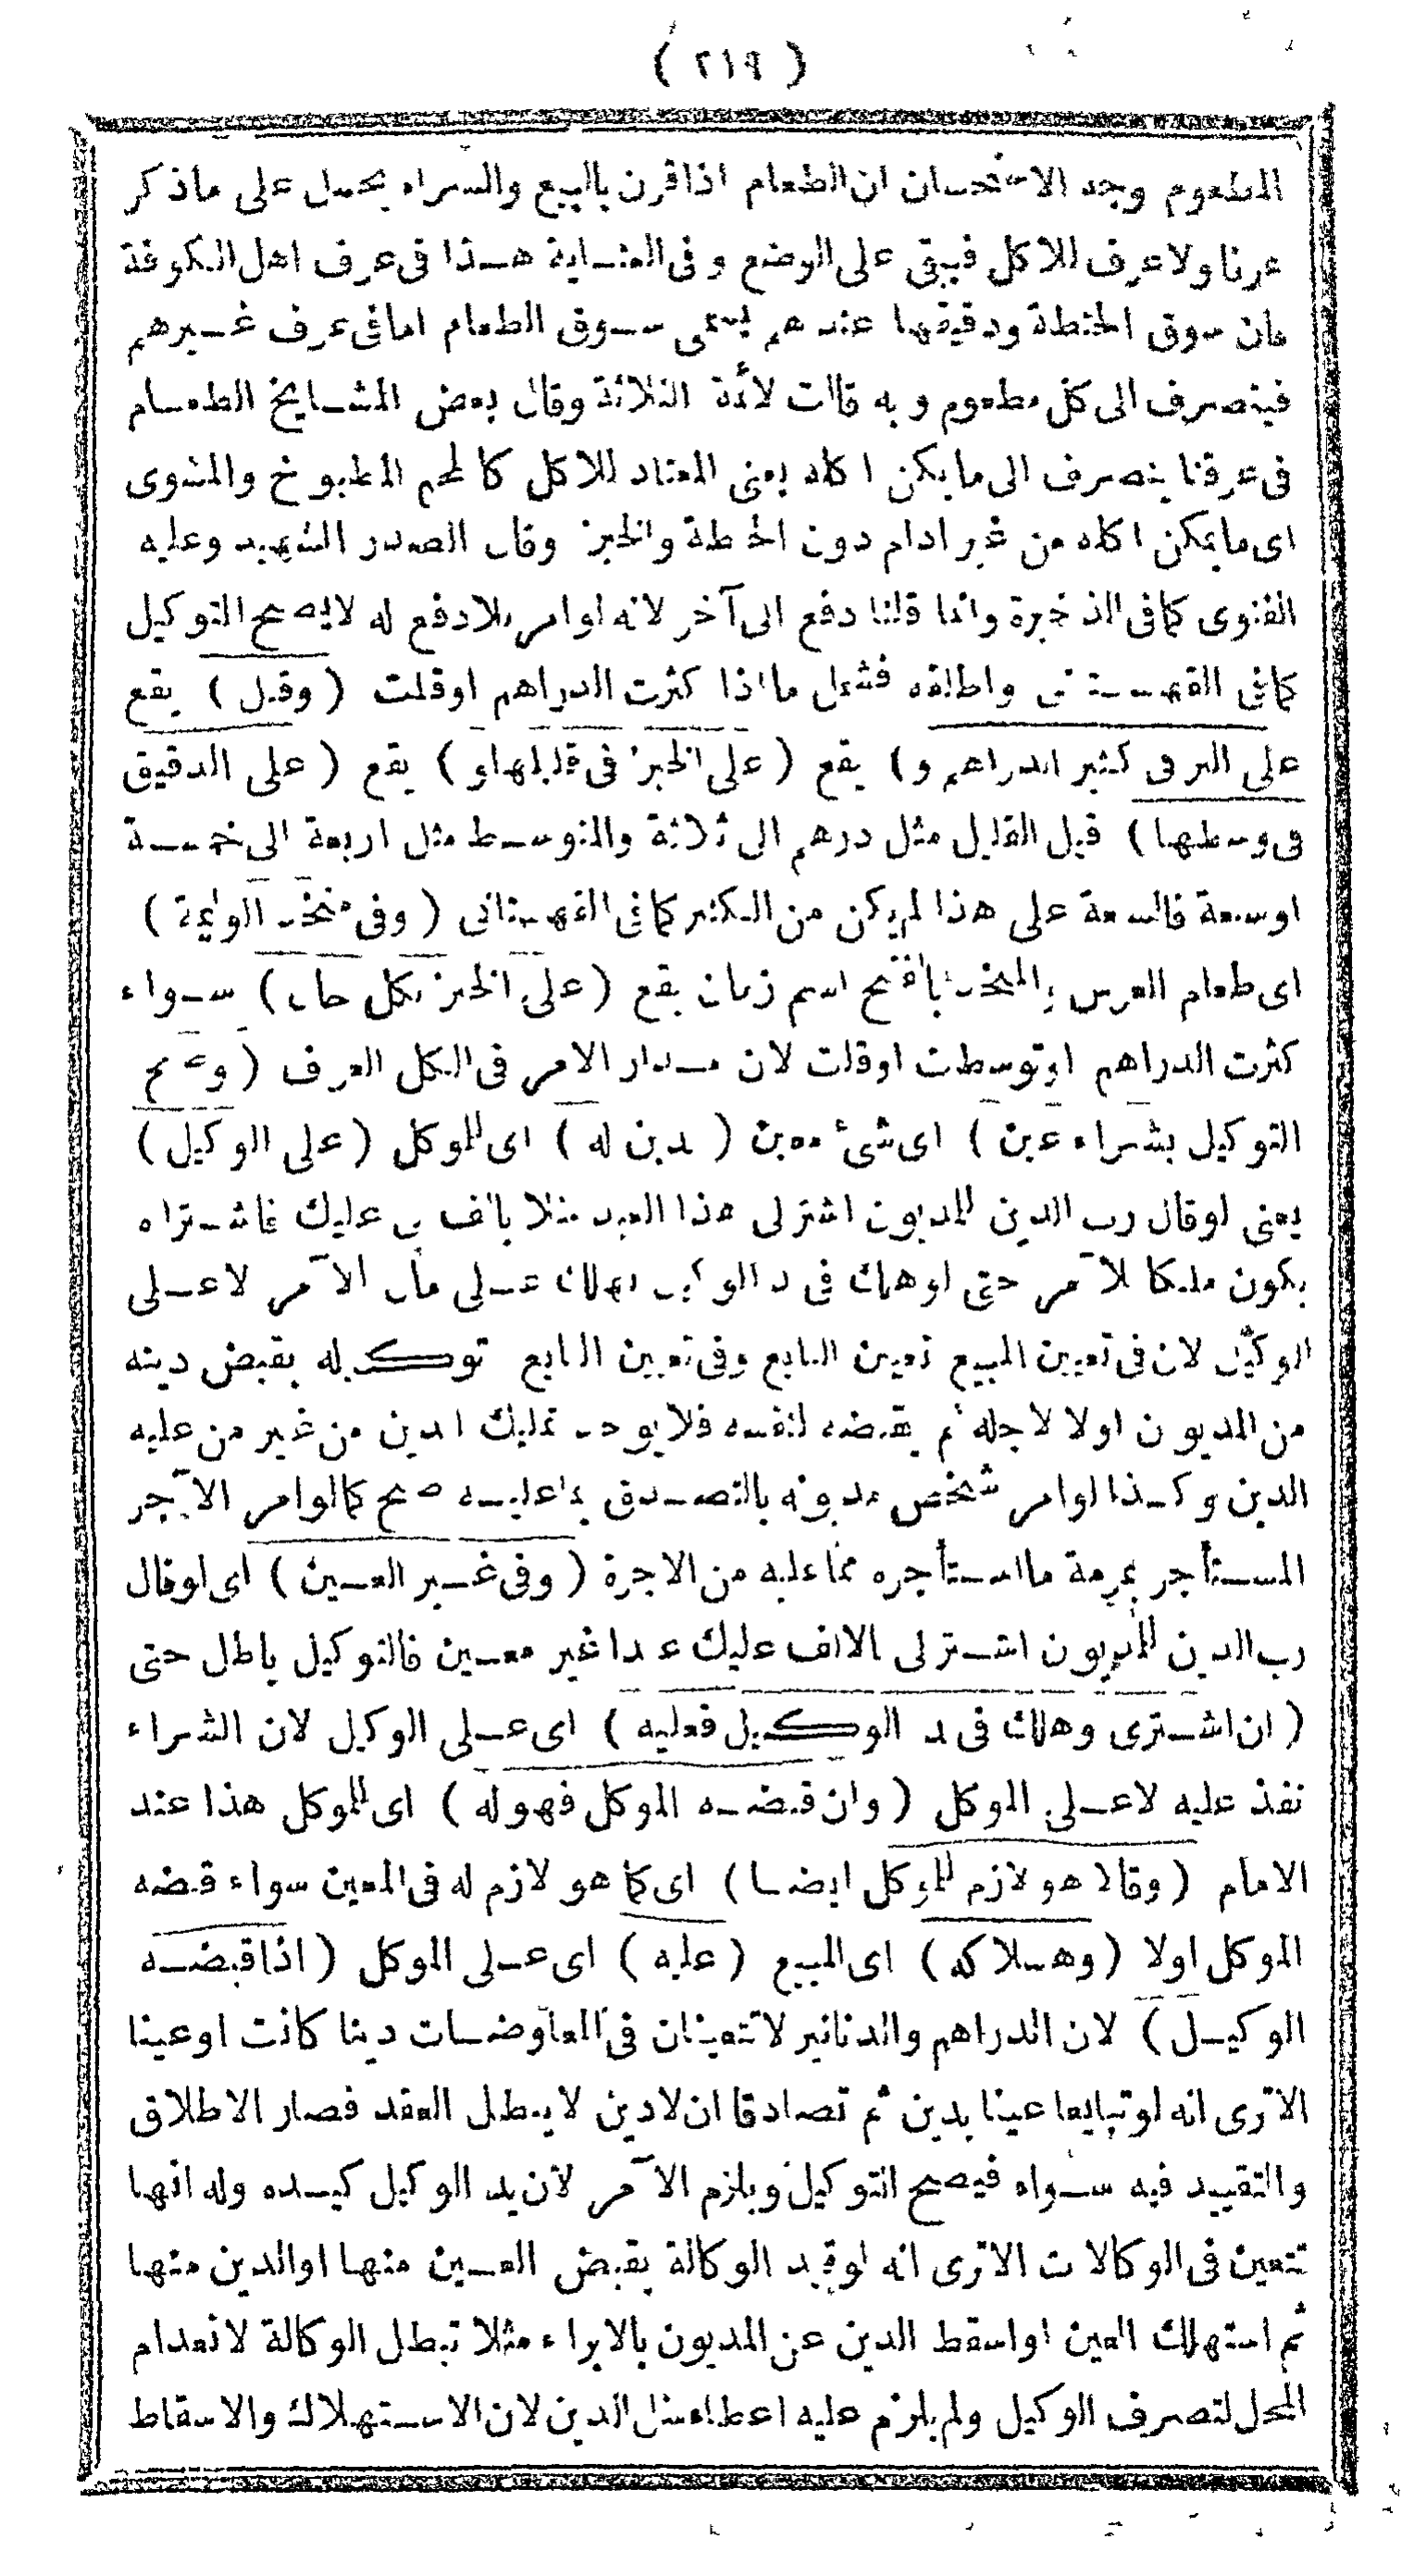 ( ٢١٩ )
المطعوم وجه الاستحسان ان الطعام اذا قرن بالبيع والشراء يحمل على ماذكر
عرفا ولا عرف للاكل فيبقى على الوضع وفى العناية هذا فى عرف اهل الكوفة
فان سوق الحنطة ودقيقها عندهم يسمى سوق الطعام اما فى عرف غيرهم
فينصرف الى كل مطعوم وبه قالت الائمة الثلاثة وقال بعض المشايخ الطعام
فى عرفنا ينصرف الى ما يمكن اكله يعنى المعتاد للاكل كاللحم المطبوخ والمشوى
اى مايمكن اكله من غير ادام دون الحنطة والخبز وقال الصدر الشهيد وعليه
الفتوى كما فى الذخيرة وانما قلنا دفع الى آخر لانه لو امر بلا دفع له لا يصح التوكيل
كما فى القهستانى واطلاقه فشمل ما اذا كثرت الدراهم او قلت ( وقيل ) يقع
على البر فى كثير الدراهم و) يقع ( على الخبز فى قليلها و ) يقع ( على الدقيق
فى وسطها ) قيل القليل مثل درهم الى ثلاثة والمتوسط مثل اربعة الى خمسة
او سبعة فالسبعة على هذا لم يكن من الكثير كما فى القهستانى ( وفى متخذ الوليمة )
اى طعام العرس والمتخذ بالفتح اسم زمان يقع ( على الخبز بكل حال ) سواء
كثرت الدراهم او توسطت او قلت لان مدار الامر فى الكل العرف ( وصح
التوكيل بشراء عين ) اى شئ معين ( بدين له ) اى للموكل ( على الوكيل )
يعنى لو قال رب الدين للمديون اشتر لى هذا العبد مثلا بالف لى عليك فاشتراه
يكون ملكا للآمر حتى لو هلك فى يد الوكيل يهلك على مال الآمر لا على
الوكيل لان فى تعيين المبيع تعيين البايع وفى تعيين البايع توكيله بقبض دينه
من المديون اولا لاجله ثم يقبضه لنفسه فلا يوجد تمليك الدين من غير من عليه
الدين وكذا لو امر شخص مديونه بالتصدق بما عليه صح كما لو امر الآجر
المستأجر بمرمة ما استأجره مما عليه من الاجرة ( وفى غير العين ) اى لو قال
رب الدين للمديون اشتر لى بالالف عليك عبدا غير معين فالتوكيل باطل حتى
( ان اشترى وهلك فى يد الوكيل فعليه ) اى على الوكيل لان الشراء
نفذ عليه لا على الموكل ( وان قبضه الموكل فهو له ) اى للموكل هذا عند
الامام ( وقالا هو لازم للموكل ايضا ) اى كما هو لازم له فى المعين سواء قبضه
الموكل اولا ( وهلاكه ) اى المبيع ( عليه ) اى على الموكل ( اذا قبضه
الوكيل ) لان الدراهم والدنانير لا تتعينان فى المعاوضات دينا كانت او عينا
الا ترى انه لو تبايعا عينا بدين ثم تصادقا ان لا دين لا يبطل العقد فصار الاطلاق
والتقييد فيه سواء فيصح التوكيل ويلزم الآمر لان يد الوكيل كيده وله انها
تتعين فى الوكالات الا ترى انه لو قيد الوكالة بقبض العين منها او الدين منها
ثم استهلك العين او اسقط الدين عن المديون بالابراء مثلا تبطل الوكالة لانعدام
المحل لتصرف الوكيل ولم يلزم عليه اعطاء مثل الدين لان الاستهلاك والاسقاط